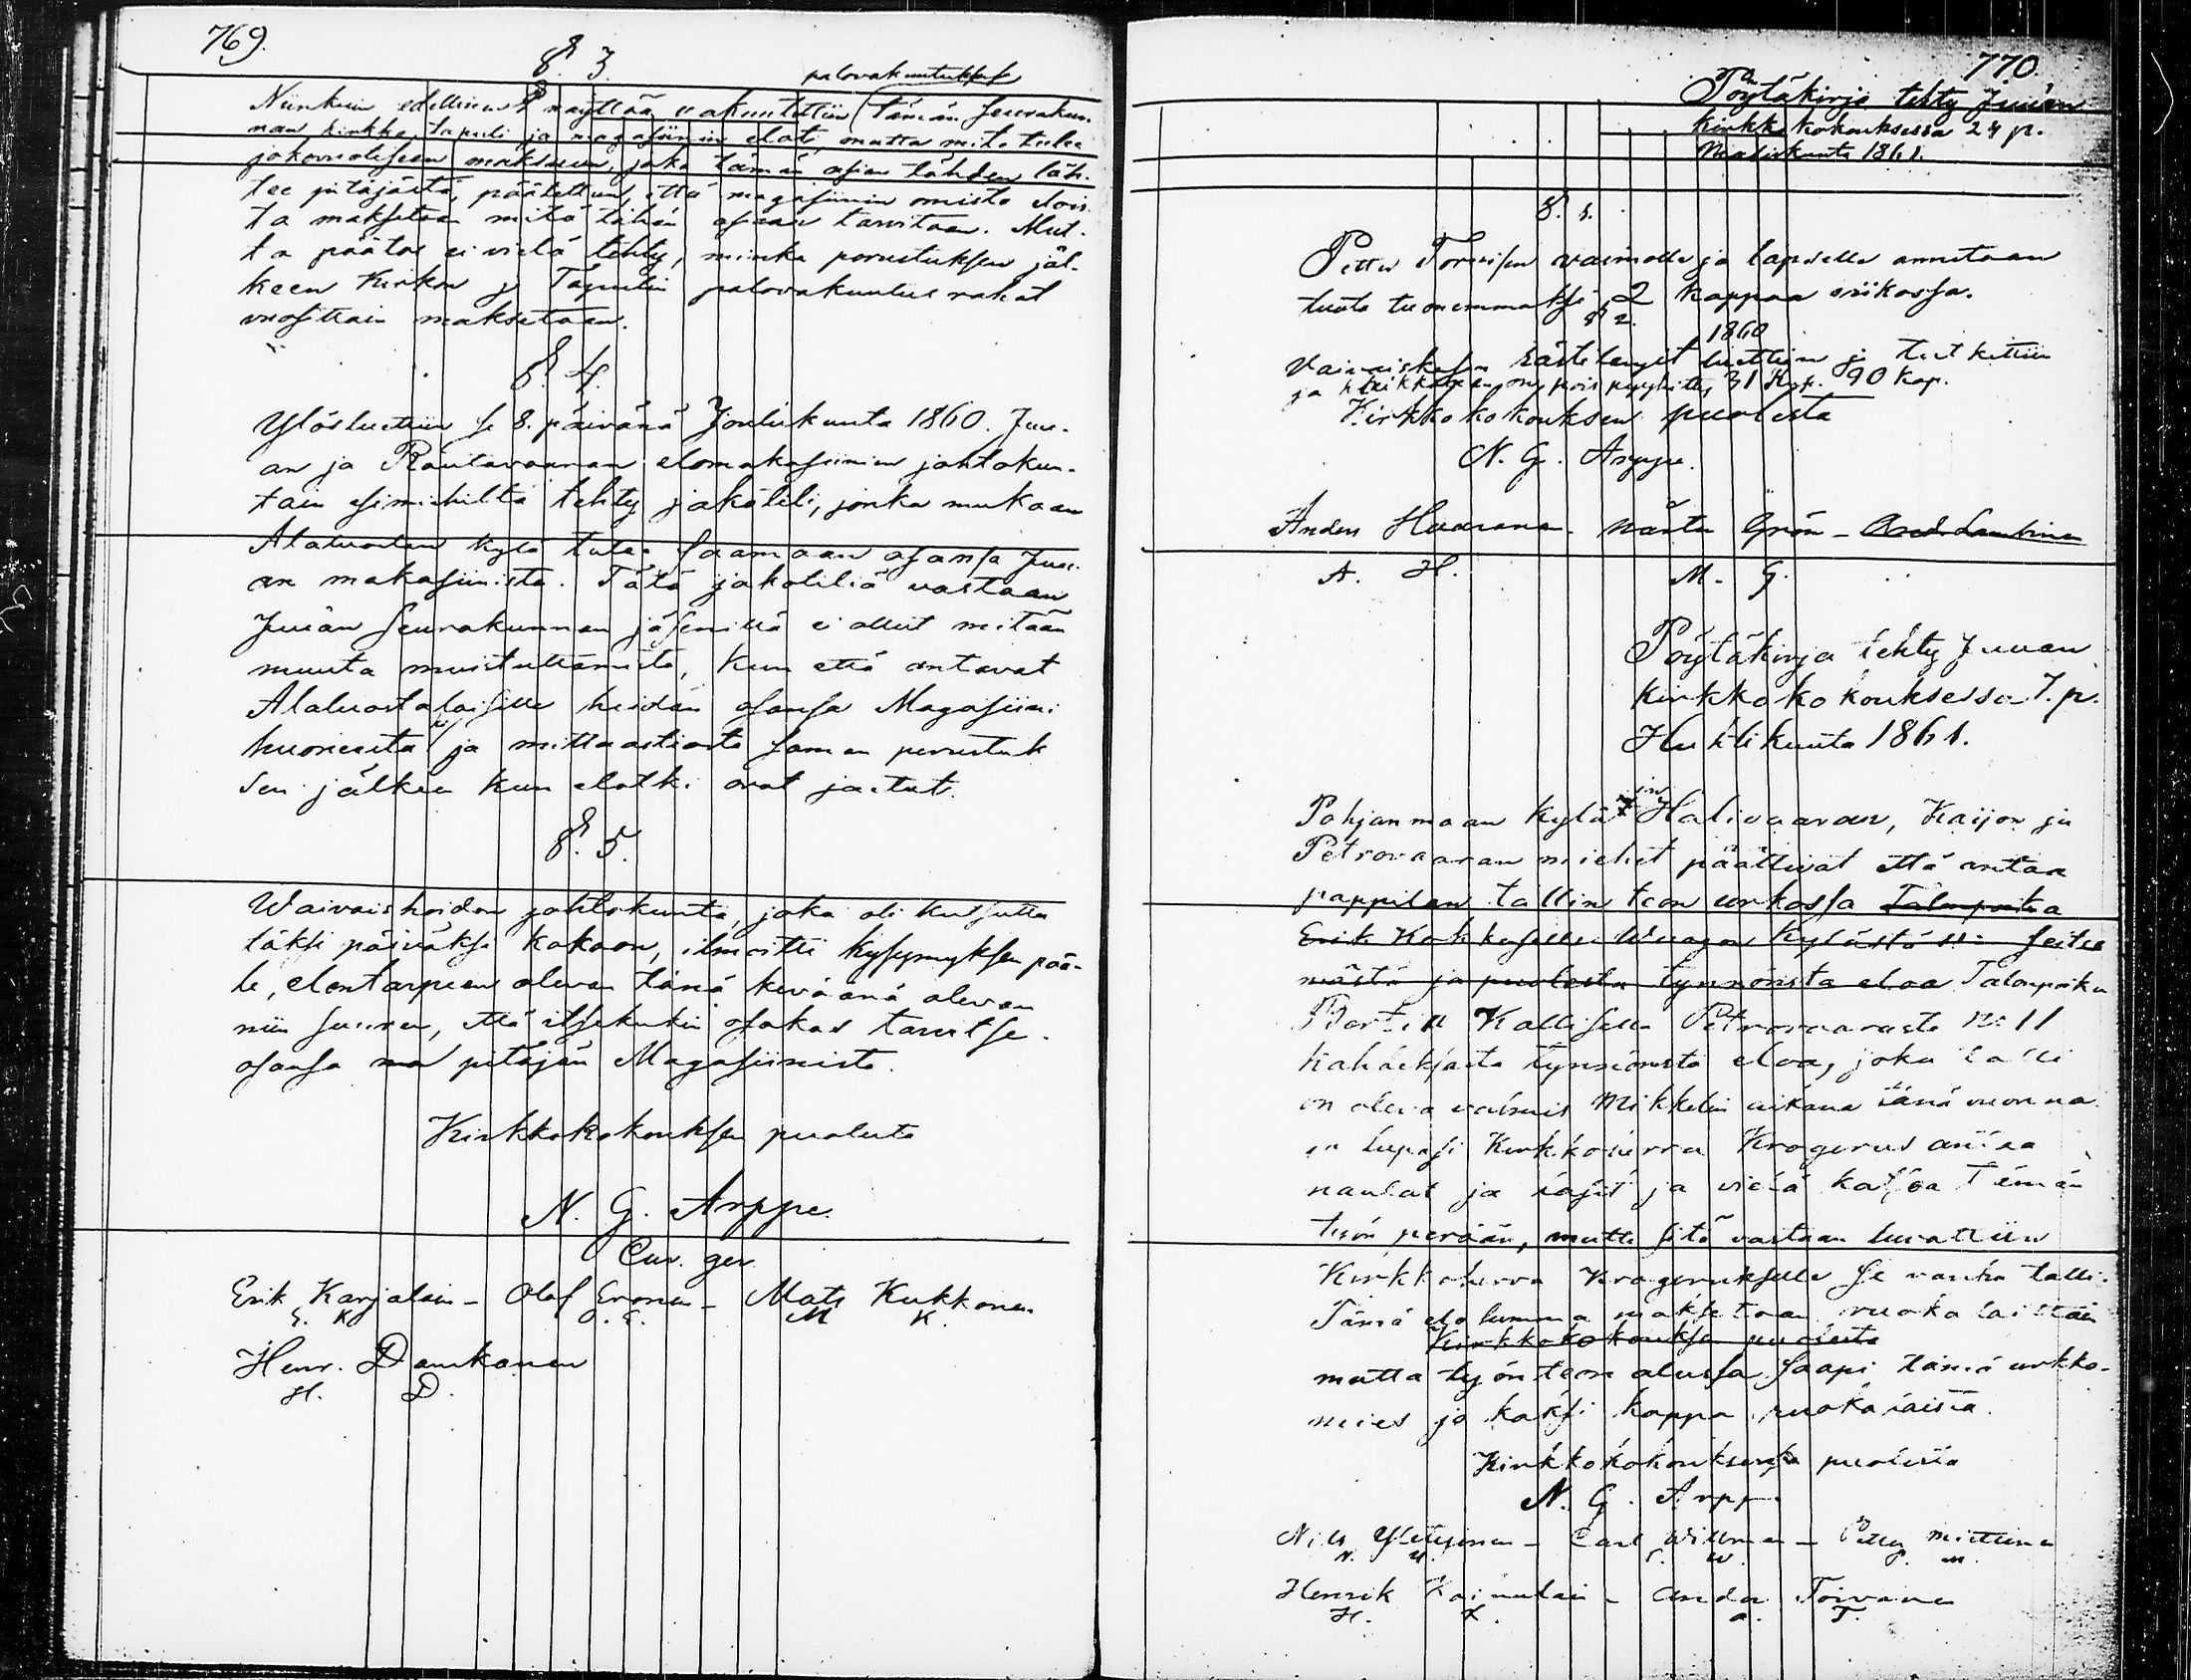 769.
§. 3.
palovakuutuksesa
Niinkuin edellinen § näyttää vakuutettiin tämän seurakun-
nan kirkko, tapuli ja magasiinin elot, mutta mitä tulee
jokavuotiseen maksuun, joka tämän asian tähden läh-
tee pitäjästä, päätettiin, että magasiinin omista elois-
ta maksetaan mitä tähän asiaan tarvitaan. Mut-
ta päätös ei vielä tehty, minkä perustuksen jäl-
keen Kirkon ja Tapulin palovakuutus rahat
vuosittain maksetaan.
§. 4.
Ylösluettiin se 8. päivänä Joulukuuta 1860. Juu-
an ja Rautavaaran elomakasiinien johtokun-
tain esimiehiltä tehty jakolili, jonka mukaan
Alaluostan kylä tulee saamaan osansa Juu-
an makasiinista. Tätä jakoliliä vastaan
Juuan seurakunnan jäsenillä ei ollut mitään
muuta muistuttamista, kun että antavat
Alaluostalaisille heidän osansa Magasiini
huoneesta ja mitta astiasta saman perustuk
sen jälkeen kun elotki ovat jaetut.
§. 5.
Waivaishoidon johtokunta, joka oli kutsuttu
täksi päiväksi kokoon, ilmoitti kysymyksen pää-
le, elontarpeen olevan tänä keväänä olevan
niin suuren, että itsekukin osakas tarvitse
osansa pitäjän Magasiinista.
Kirkkokokouksen puolesta
N. G. Arppe.
Cur. ger.
Erik Karjalain - Olof Eronen - Mats Kukkonen
E. K. O. E. M K.
Henr. Dankanen
H. D.
770.
Pöytäkirja tehty Juuan
kirkkokokouksessa 24 p.
Maliskuuta 1861.
§. 1.
Petter Torvisen vaimolle ja lapselle annetaan
tuota tuonemmaksi 2 kappaa viikossa.
§ 2.
1860
Vaivaiskassan rästilengit luettiin ja tutkittiin
ja on pois pyyhitty 31 Rup. 90 kop.
Kirkkokokouksen puolesta
N. G. Arppe.
Anders Huuranen. Mårten Grön - And. Lambinen
A. H. M. G.
Pöytäkirja tehty Juuan
kirkkokokouksessa 7. p.
Huhtikuuta 1861.
Pohjanmaan kylä Halivaaran, Kaijon ja
Petrovaaran miehet päättivät että antaa
pappilan tallin teon urkossa Talonpoika
Erik Kokkoselle Wuagon Kylästä seitse
mästä ja puolesta tynnöristä eloa Talonpoika
Bertil Kalliselle Petrovaarasta No 11
kahdeksasta tynnöristä eloa, joka talli
on oleva valmis Mikkelin aikana tänä vuonna.
ja lupasi Kirkkoherra Krogerus antaa
naulat ja lasit ja vielä katsoa tämän
työn perään, mutta sitä vastaan luvattiin
Kirkkoherra Krogerukselle se vanha talli.
Tämä elo summa maksetaan ruoka laistaan
Kirkkokokouksen puolesta
mutta työn teon alussa saapi tämä urkko-
mies jo kaksi kappa ruokaraista.
Kirkkokokouksen puolesta
N. G. Arppe
Nils - Carl Willman - Petter Miettinen
N. C. W. P. M.
Henrik Kainulain - Anders Toivanen
H. K. A. T.